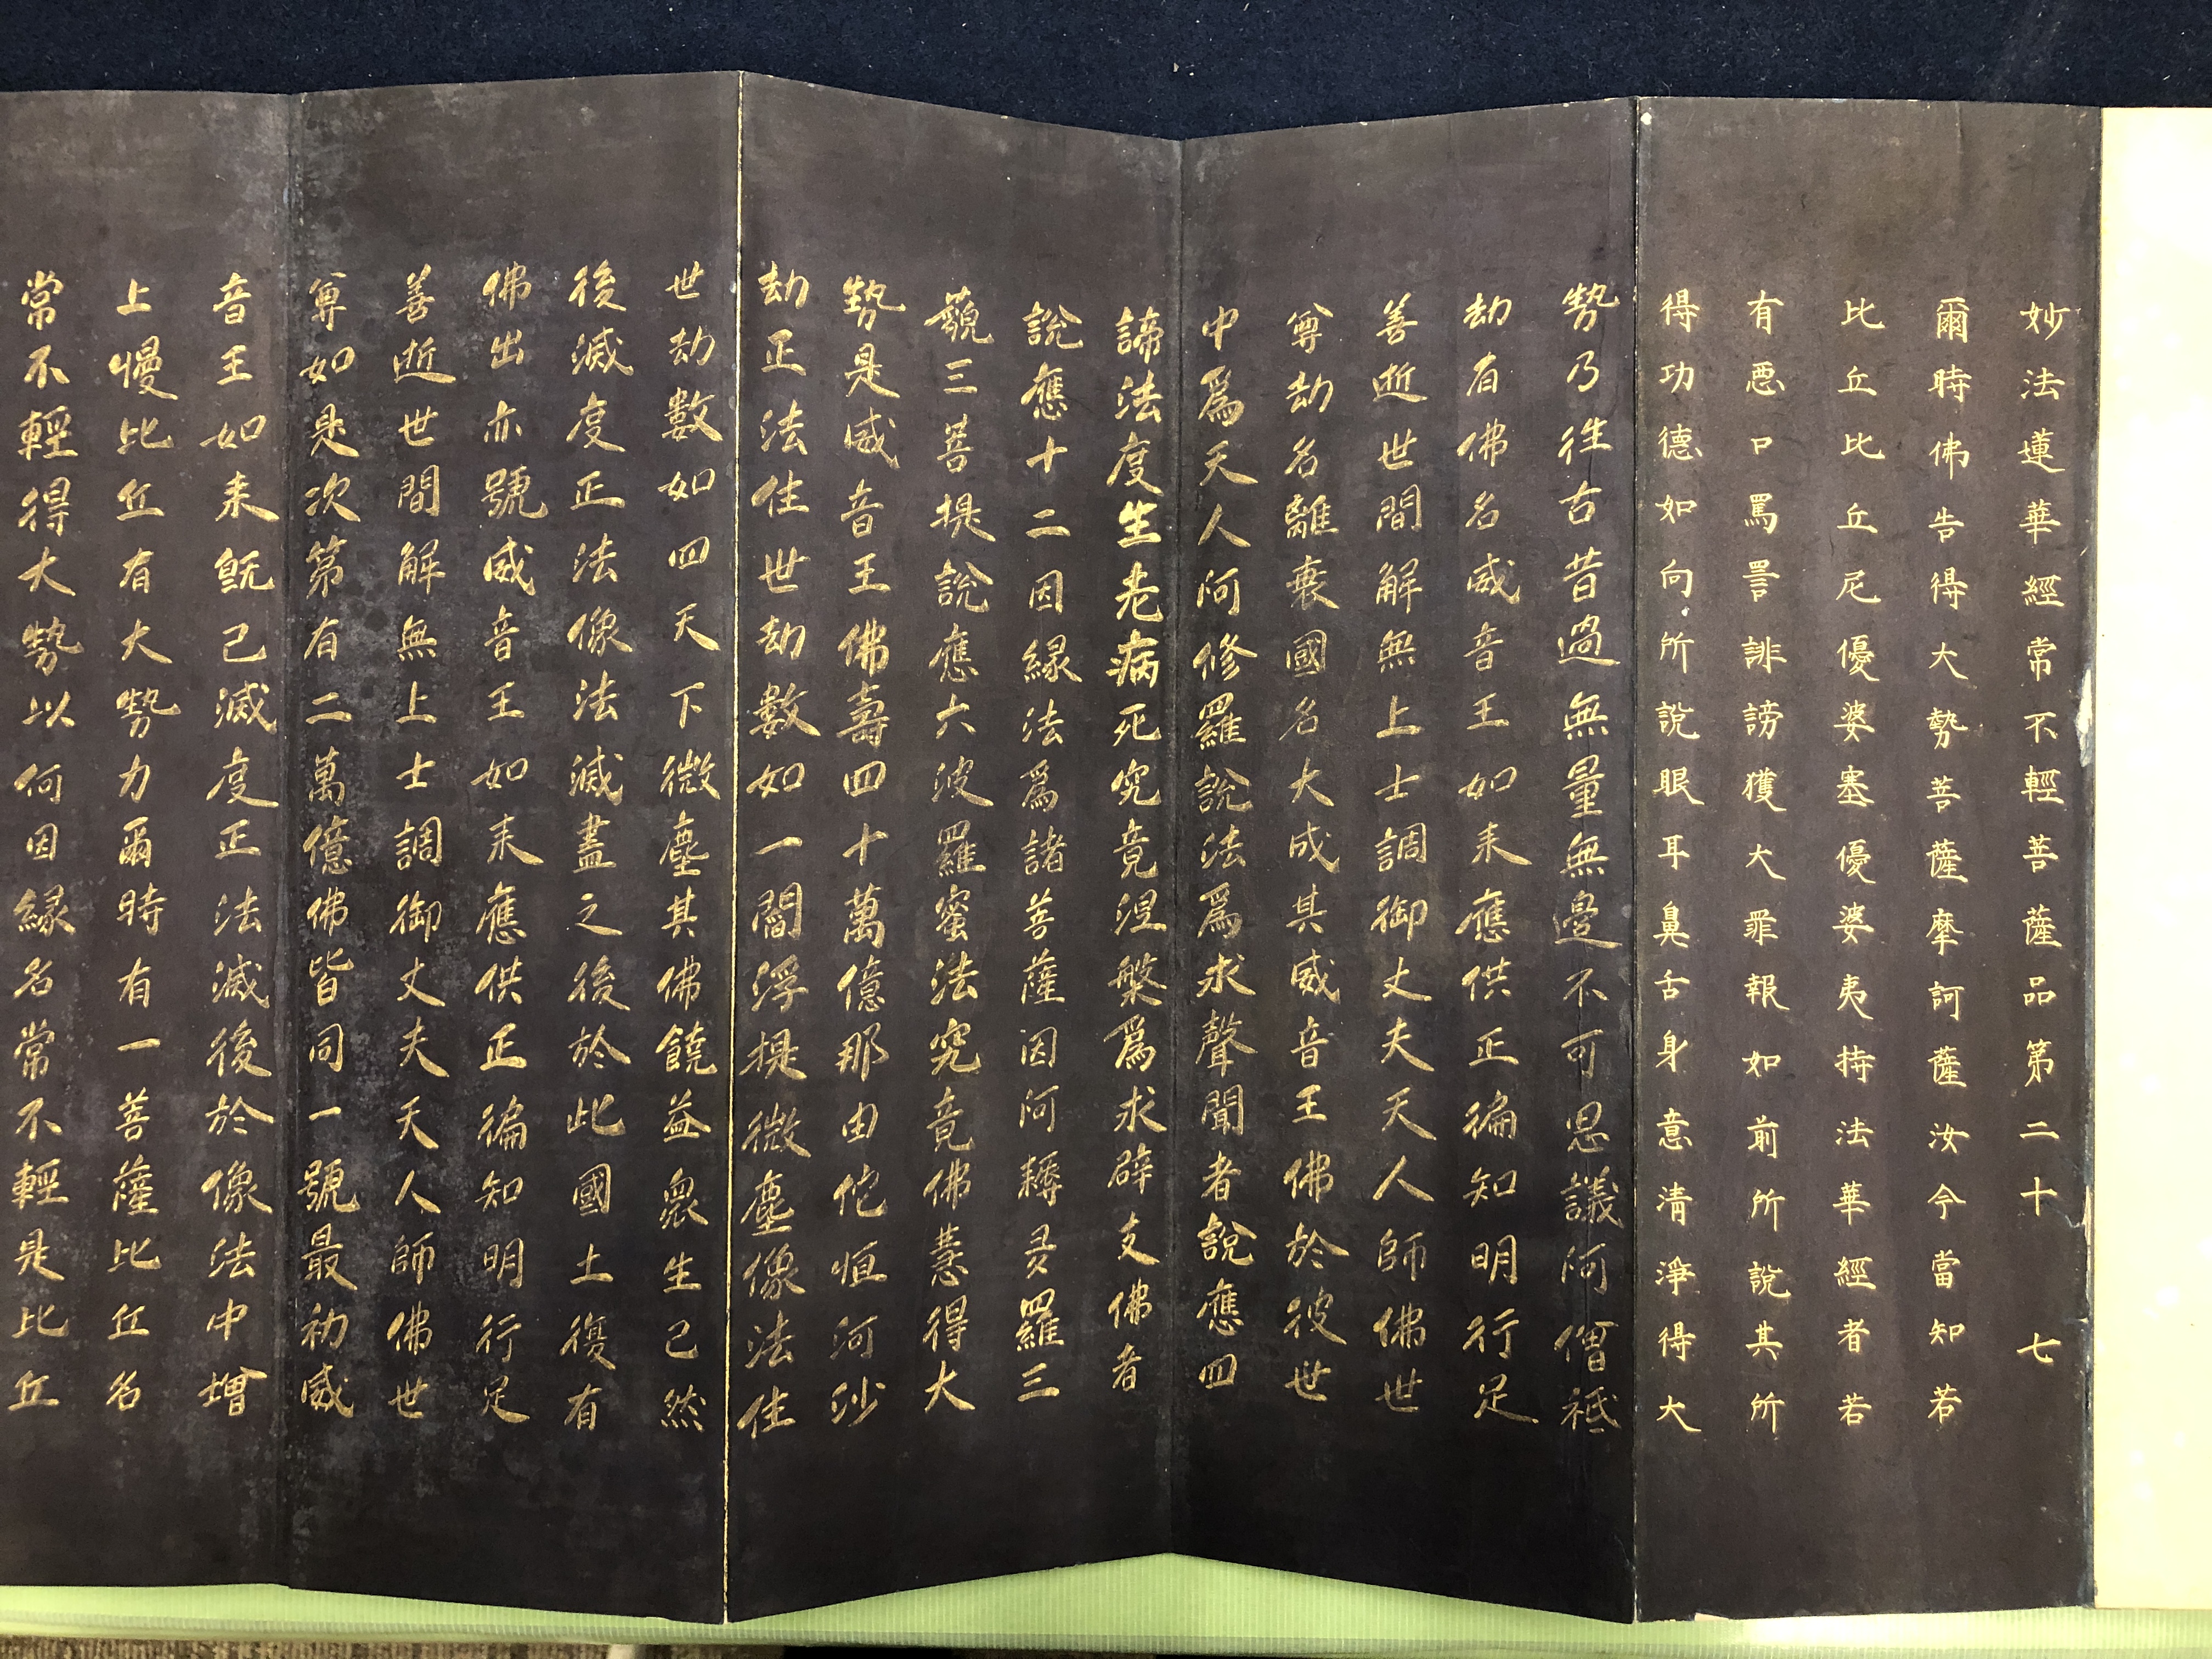 妙法蓮華經常不輕菩薩品第二十 七
爾時佛告得大勢菩薩摩訶薩汝今當知若
比丘比丘尼優婆塞優婆夷持法華經者若
有惡口罵詈誹謗獲大罪報如前所說其所
得功德如向所說眼耳鼻舌身意清淨得大
勢乃往古昔過無量無邊不可思議阿僧祇
劫有佛名威音王如来應供正徧知明行足
善逝世間解無上士調御丈夫天人師佛世
尊劫名離衰國名大成其威音王佛於彼世
中爲天人阿修羅說法爲求聲聞者說應四
諦法度生老病死究竟涅槃爲求辟支佛者
說應十二因緣法爲諸菩薩因阿耨多羅三
藐三菩提說應六波羅蜜法究竟佛慧得大
勢是威音王佛壽四十萬億那由佗恒河沙
劫正法住世劫數如一閻浮提微塵像法住
世劫數如四天下微塵其佛饒益眾生已然
後滅度正法像法滅盡之後於此國土復有
佛出亦號威音王如来應供正徧知明行足
善逝世間解無上士調御丈夫天人師佛世
尊如是次第有二萬億佛皆同一號最初威
音王如来既已滅度正法滅後於像法中增
上慢比丘有大勢力爾時有一菩薩比丘名
常不輕得大勢以何因緣名常不輕是比丘